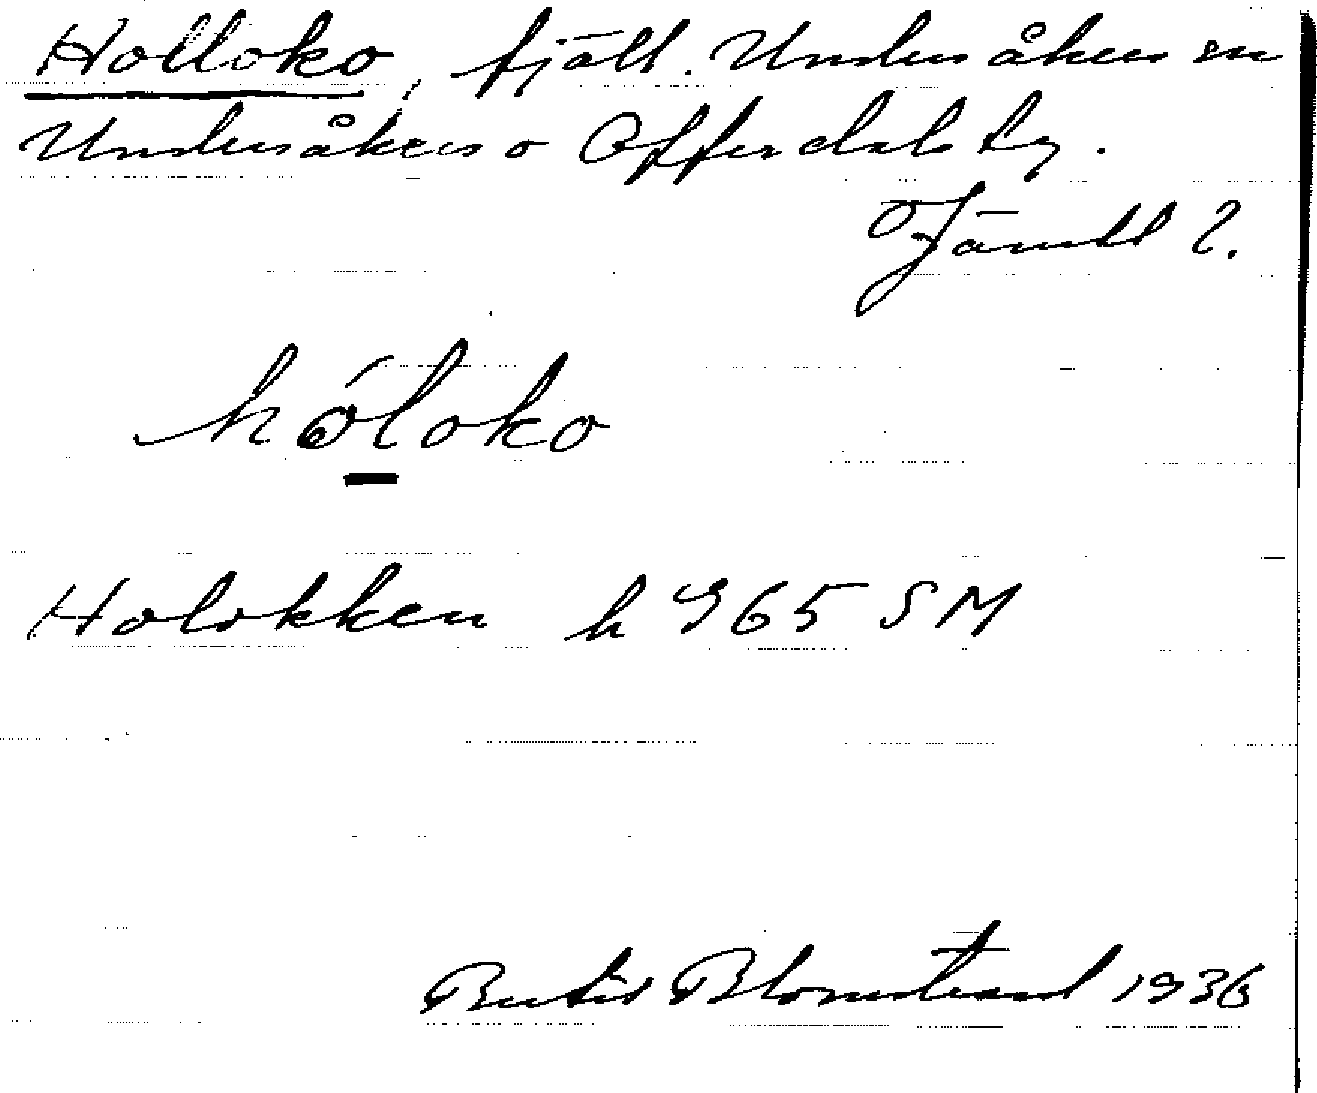 Holloko, fjäll. Undersåkers sn
Undersåkers o Offerdals tg.
Jämtl l.
hóloko
Holokken h 965 SM
Bertil Blomstrand 1936